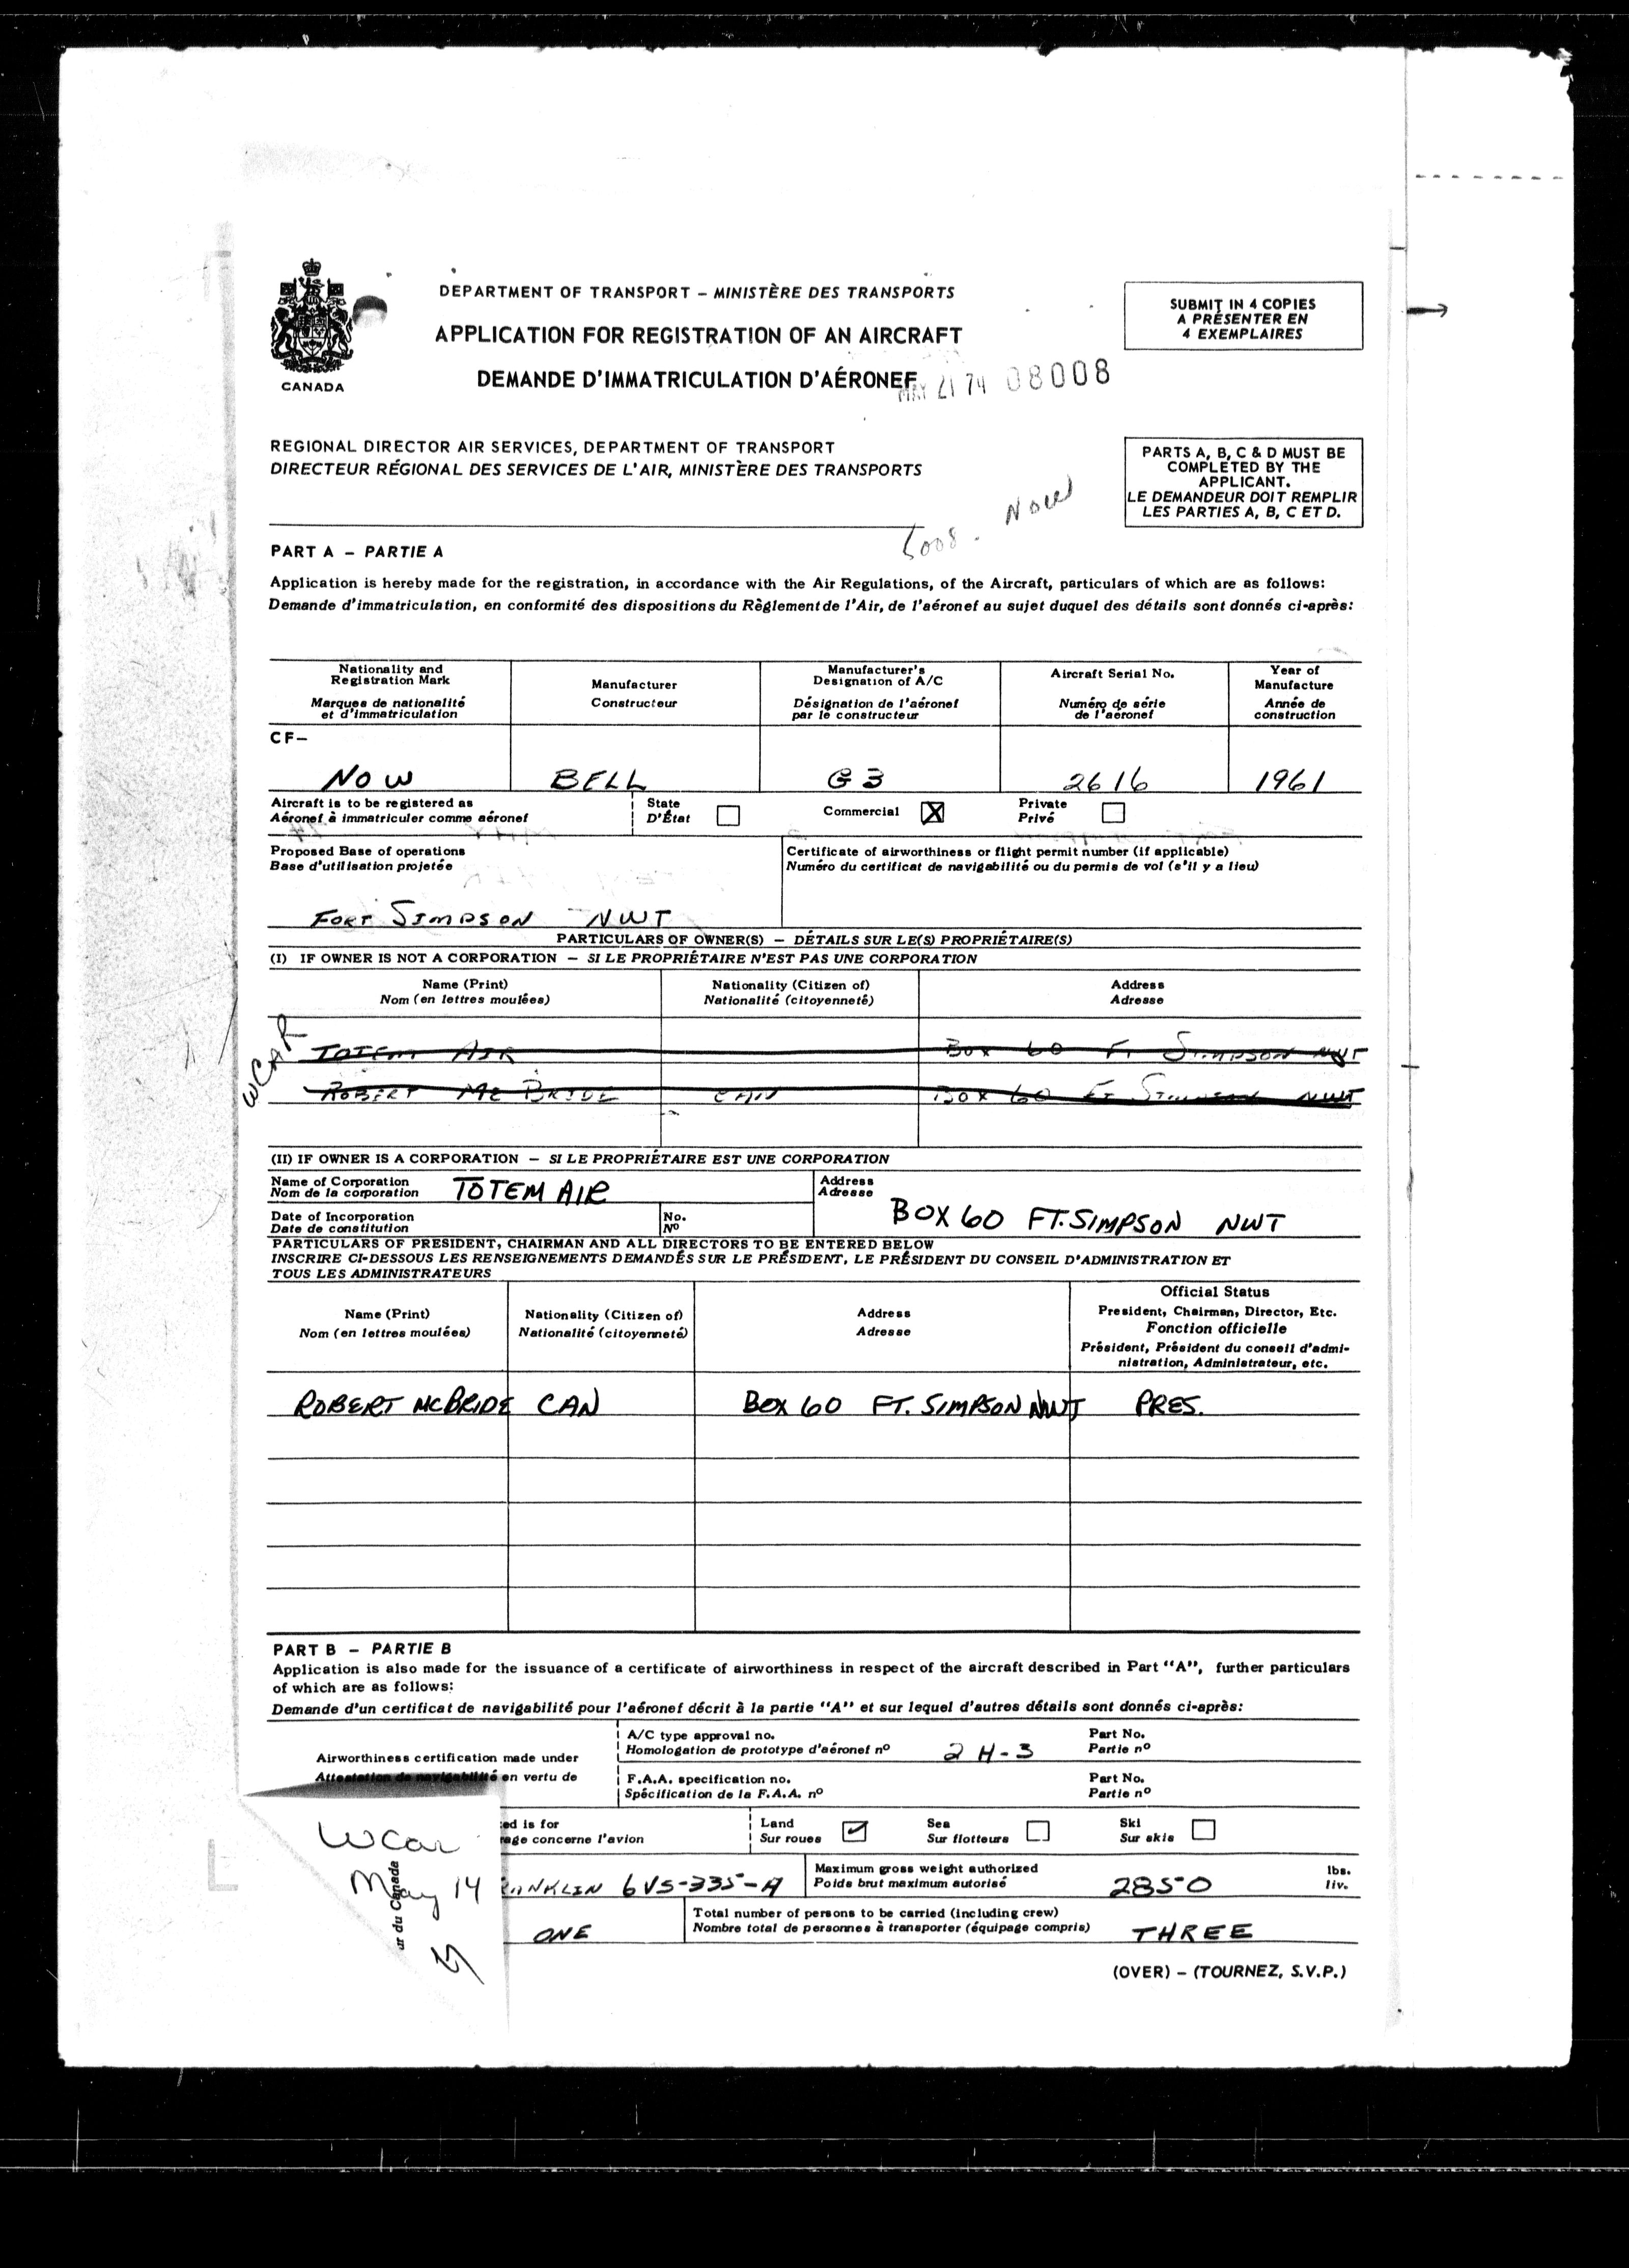 DEPARTMENT OF TRANSPORT – MINISTÈRE DES TRANSPORTS
APPLICATION FOR REGISTRATION OF AN AIRCRAFT
DEMANDE D'IMMATRICULATION D'AÉRONEF
CANADA
SUBMIT IN 4 COPIES
A PRÉSENTER EN
4 EXEMPLAIRES
MAY 21 74 08008
REGIONAL DIRECTOR AIR SERVICES, DEPARTMENT OF TRANSPORT
DIRECTEUR RÉGIONAL DES SERVICES DE L'AIR, MINISTÈRE DES TRANSPORTS
PARTS A, B, C & D MUST BE
COMPLETED BY THE
APPLICANT.
LE DEMANDEUR DOIT REMPLIR
LES PARTIES A, B, C ET D.
PART A – PARTIE A
Application is hereby made for the registration, in accordance with the Air Regulations, of the Aircraft, particulars of which are as follows:
Demande d'immatriculation, en conformité des dispositions du Règlement de l'Air, de l'aéronef au sujet duquel des détails sont donnés ci-après:
Nationality and
Registration Mark
Marques de nationalité
et d'immatriculation
Manufacturer
Constructeur
Manufacturer's
Designation of A/C
Désignation de l'aéronef
par le constructeur
Aircraft Serial No.
Numéro de série
de l'aéronef
Year of
Manufacture
Année de
construction
CF–
NOW BELL G3 2616 1961
Aircraft is to be registered as
Aéronef à immatriculer comme aéronef
State
D'État
Commercial X
Private
Privé
Proposed Base of operations
Base d'utilisation projetée
FORT SIMPSON NWT
Certificate of airworthiness or flight permit number (if applicable)
Numéro du certificat de navigabilité ou du permis de vol (s'il y a lieu)
PARTICULARS OF OWNER(S) – DÉTAILS SUR LE(S) PROPRIÉTAIRE(S)
(I) IF OWNER IS NOT A CORPORATION – SI LE PROPRIÉTAIRE N'EST PAS UNE CORPORATION
Name (Print)
Nom (en lettres moulées)
Nationality (Citizen of)
Nationalité (citoyenneté)
Address
Adresse
WCAR
TOTEM AIR BOX 60 FT SIMPSON NWT
ROBERT MCBRIDE CAN BOX 60 FT SIMPSON NWT
(II) IF OWNER IS A CORPORATION – SI LE PROPRIÉTAIRE EST UNE CORPORATION
Name of Corporation
Nom de la corporation
TOTEM AIR
Address
Adresse
BOX 60 FT. SIMPSON NWT
Date of Incorporation
Date de constitution
No.
Nº
PARTICULARS OF PRESIDENT, CHAIRMAN AND ALL DIRECTORS TO BE ENTERED BELOW
INSCRIRE CI-DESSOUS LES RENSEIGNEMENTS DEMANDÉS SUR LE PRÉSIDENT, LE PRÉSIDENT DU CONSEIL D'ADMINISTRATION ET
TOUS LES ADMINISTRATEURS
Name (Print)
Nom (en lettres moulées)
Nationality (Citizen of)
Nationalité (citoyenneté)
Address
Adresse
Official Status
President, Chairman, Director, Etc.
Fonction officielle
Président, Président du conseil d'admi-
nistration, Administrateur, etc.
ROBERT MCBRIDE CAN BOX 60 FT. SIMPSON NWT PRES.
PART B – PARTIE B
Application is also made for the issuance of a certificate of airworthiness in respect of the aircraft described in Part "A", further particulars
of which are as follows:
Demande d'un certificat de navigabilité pour l'aéronef décrit à la partie "A" et sur lequel d'autres détails sont donnés ci-après:
Airworthiness certification made under
Attestation de navigabilité en vertu de
A/C type approval no.
Homologation de prototype d'aéronef nº
2 H-3
Part No.
Partie nº
F.A.A. specification no.
Spécification de la F.A.A. nº
Part No.
Partie nº
ed is for
age concerne l'avion
Land
Sur roues
Sea
Sur flotteurs
Ski
Sur skis
WCar
May 14
ur du Canada
RANKLIN 6VS-335-A
Maximum gross weight authorized
Poids brut maximum autorisé
2850
lbs.
liv.
ONE
Total number of persons to be carried (including crew)
Nombre total de personnes à transporter (équipage compris)
THREE
(OVER) – (TOURNEZ, S.V.P.)